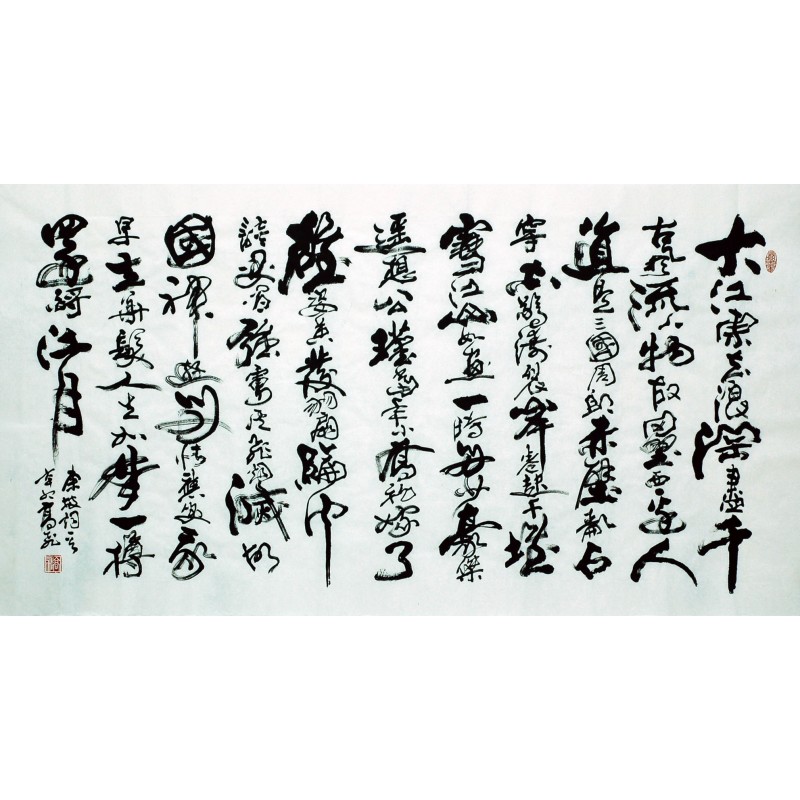 大江東去浪淘盡千
古風流人物故壘西邊人
道是三國周郎赤壁亂石
穿空驚濤裂岸卷起千堆
雪江山如畫一時多少豪傑
遙想公瑾當年小喬初嫁了
雄姿英發羽扇綸巾
談笑間強虜灰飛煙滅故
國神遊多情應笑我
早生華髮人生如夢一樽
還酹江月
東坡詞